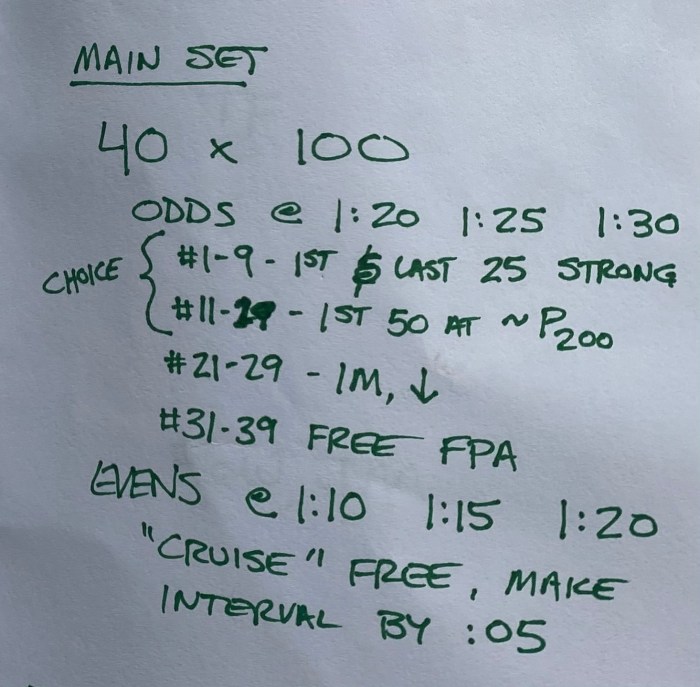 MAIN SET
40 x 100
ODDS @ 1:20 1:25 1:30
CHOICE { #1-9 - 1ST & LAST 25 STRONG
#11-19 - 1ST 50 AT ~ P200
#21-29 - IM, ↓
#31-39 FREE FPA
EVENS @ 1:10 1:15 1:20
"CRUISE" FREE, MAKE
INTERVAL BY :05